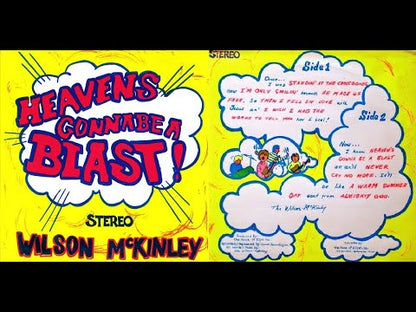 HEAVENS
GONNA BE A
BLAST!
STEREO
WILSON McKINLEY
STEREO
Side 1
Once...
I was STANDIN' AT THE CROSSROADS,
now I'M ONLY SMILIN' because HE MADE US
FREE. SO THEN I FELL IN LOVE with
Jesus an' I WISH I HAD THE
WORDS TO TELL YOU how I feel!
Side 2
Now...
I know HEAVEN'S
GONNA BE A BLAST
an we'll NEVER
CRY NO MORE. It'll
be like A WARM SUMMER
DAY sent from ALMIGHTY GOD.
The Wilson McKinley